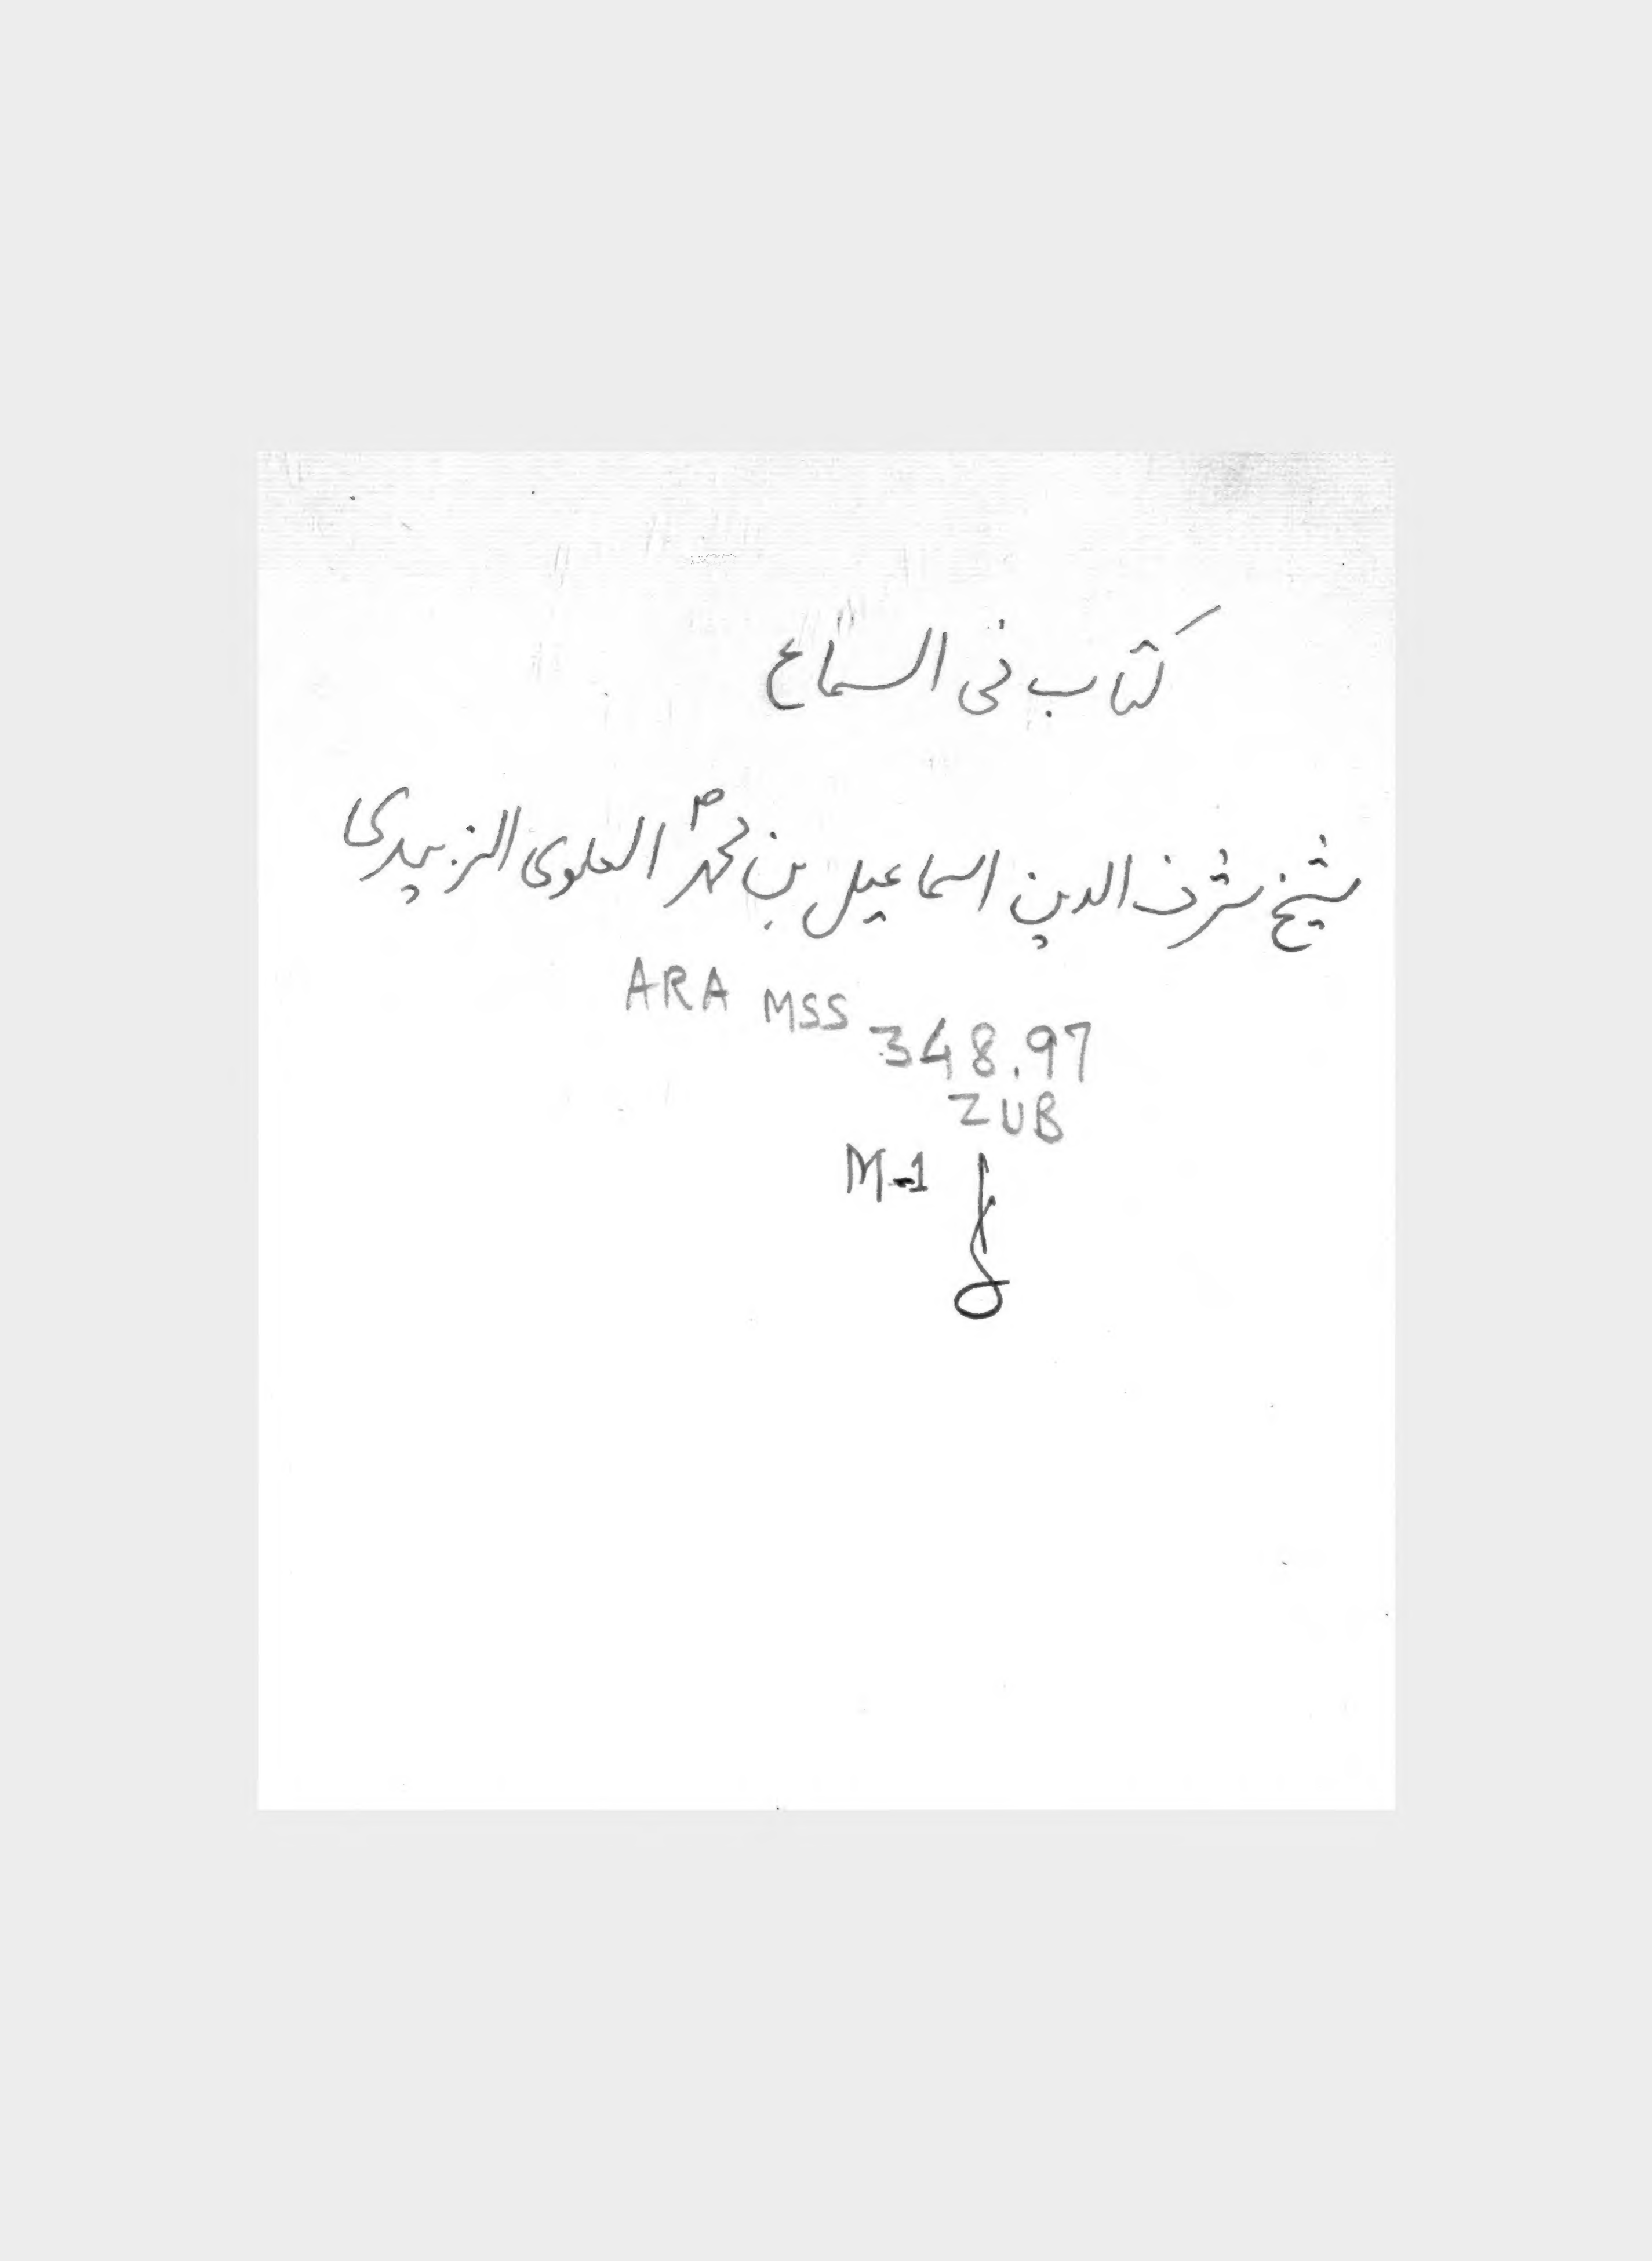 كتاب فى السماع
شيخ شرف الدين اسماعيل بن محمدؐ العلوى الزبيدى
ARA MSS
348.97
ZUB
M-1